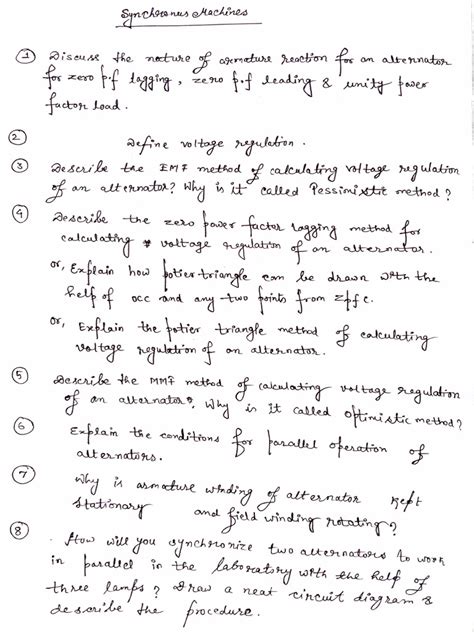 Synchronus Machines
① Discuss the nature of armature reaction for an alternator
for zero p.f lagging, zero p.f leading & unity power
factor load.
② Define voltage regulation.
③ Describe the EMF method of calculating voltage regulation
of an alternator? Why is it called Pessimistic method?
④ Describe the zero power factor lagging method for
calculating voltage regulation of an alternator.
or, Explain how potier triangle can be drawn with the
help of occ and any two points from zpfc.
or, Explain the potier triangle method of calculating
voltage regulation of an alternator.
⑤ Describe the MMF method of calculating voltage regulation
of an alternator? Why is it called optimistic method?
⑥ Explain the conditions for parallel operation of
alternators.
⑦ Why is armature winding of alternator kept
stationary and field winding rotating?
⑧ How will you synchronize two alternators to work
in parallel in the laboratory with the help of
three lamps? Draw a neat circuit diagram &
describe the procedure.